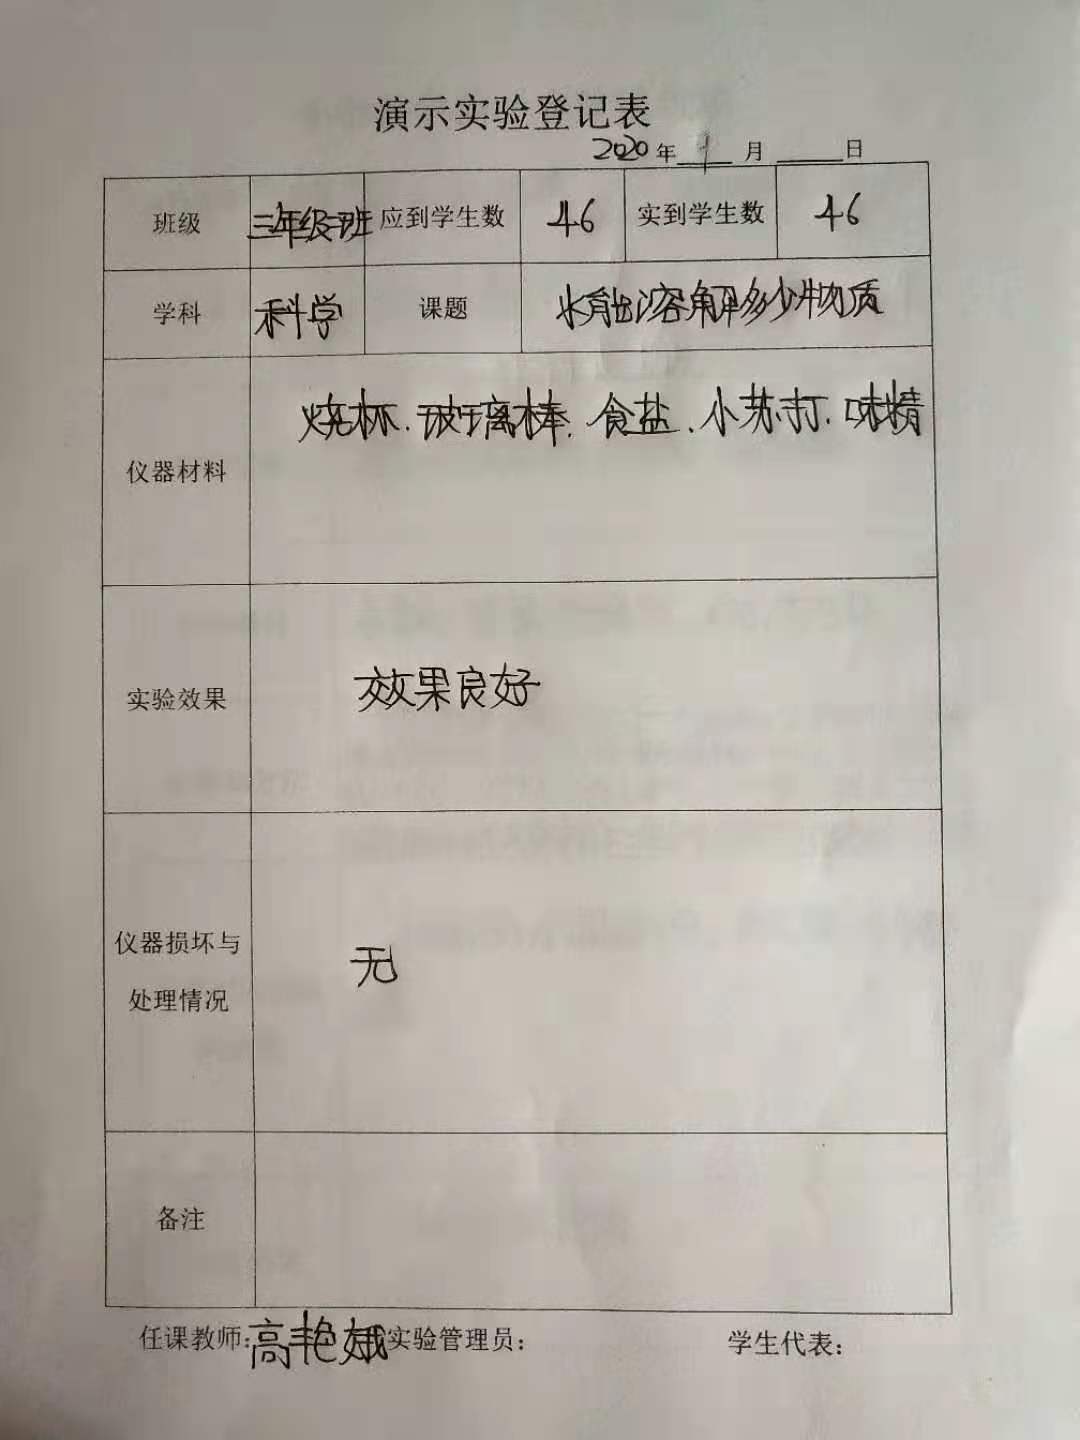 演示实验登记表
2020年 月 日
班级 三年级一班 应到学生数 46 实到学生数 46
学科 科学 课题 水能溶解多少物质
仪器材料 烧杯.玻璃棒.食盐.小苏打.味精
实验效果 效果良好
仪器损坏与
处理情况 无
备注
任课教师:高艳娥 实验管理员: 学生代表: